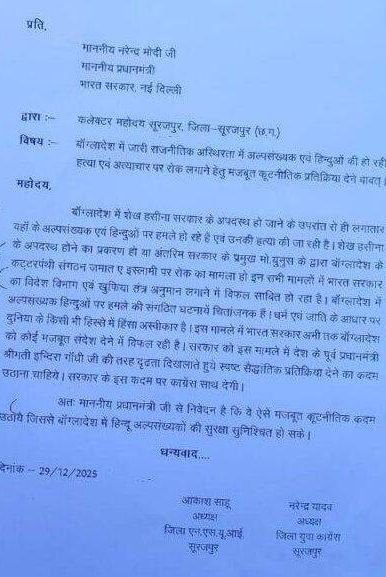 प्रति,
माननीय नरेन्द्र मोदी जी
माननीय प्रधानमंत्री
भारत सरकार, नई दिल्ली
द्वारा :– कलेक्टर महोदय सूरजपुर, जिला–सूरजपुर (छ.ग.)
विषय :– बॉंग्लादेश में जारी राजनीतिक अस्थिरता में अल्पसंख्यक एवं हिन्दुओं की हो रही
हत्या एवं अत्याचार पर रोक लगाने हेतु मजबूत कूटनीतिक प्रतिक्रिया देने बाबत्।
महोदय,
बॉंग्लादेश में शेख हसीना सरकार के अपदस्थ हो जाने के उपरांत से ही लगातार
यहाँ के अल्पसंख्यक एवं हिन्दुओं पर हमले हो रहे है एवं उनकी हत्या की जा रही है। शेख हसीना
के अपदस्थ होने का प्रकरण हो या अंतरिम सरकार के प्रमुख मो.युनुस के द्वारा बॉंग्लादेश के
कट्टरपंथी संगठन जमात ए इस्लामी पर रोक का मामला हो इन सभी मामलों में भारत सरकार
का विदेश विभाग एवं खुफिया तंत्र अनुमान लगाने में विफल साबित हो रहा है। बॉंग्लादेश में
अल्पसंख्यक हिन्दुओं पर हमले की संगठित घटनायें चिंताजनक हैं। धर्म एवं जाति के आधार पर
दुनिया के किसी भी हिस्से में हिंसा अस्वीकार है। इस मामले में भारत सरकार अभी तक बॉंग्लादेश
को कोई मजबूत संदेश देने में विफल रही है। सरकार को इस मामले में देश के पूर्व प्रधानमंत्री
श्रीमती इन्दिरा गाँधी जी की तरह दृढ़ता दिखलाते हुये स्पष्ट सैद्धांतिक प्रतिक्रिया देने का कदम
उठाना चाहिये। सरकार के इस कदम पर कांग्रेस साथ देगी।
अतः माननीय प्रधानमंत्री जी से निवेदन है कि वे ऐसे मजबूत कूटनीतिक कदम
उठाये जिससे बॉंग्लादेश में हिन्दू अल्पसंख्यकों की सुरक्षा सुनिश्चित हो सके।
धन्यवाद....
दिनांक – 29/12/2025
आकाश साहू
अध्यक्ष
जिला एन.एस.यू.आई.
सूरजपुर
नरेन्द्र यादव
अध्यक्ष
जिला युवा कांग्रेस
सूरजपुर